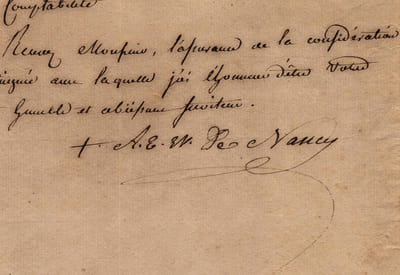 Comptabilité
Recevez Monsieur, l'assurance de la considération
avec laquelle j'ai l'honneur d'être Votre
humble et obéissant serviteur.
+ A. E. De Nancy